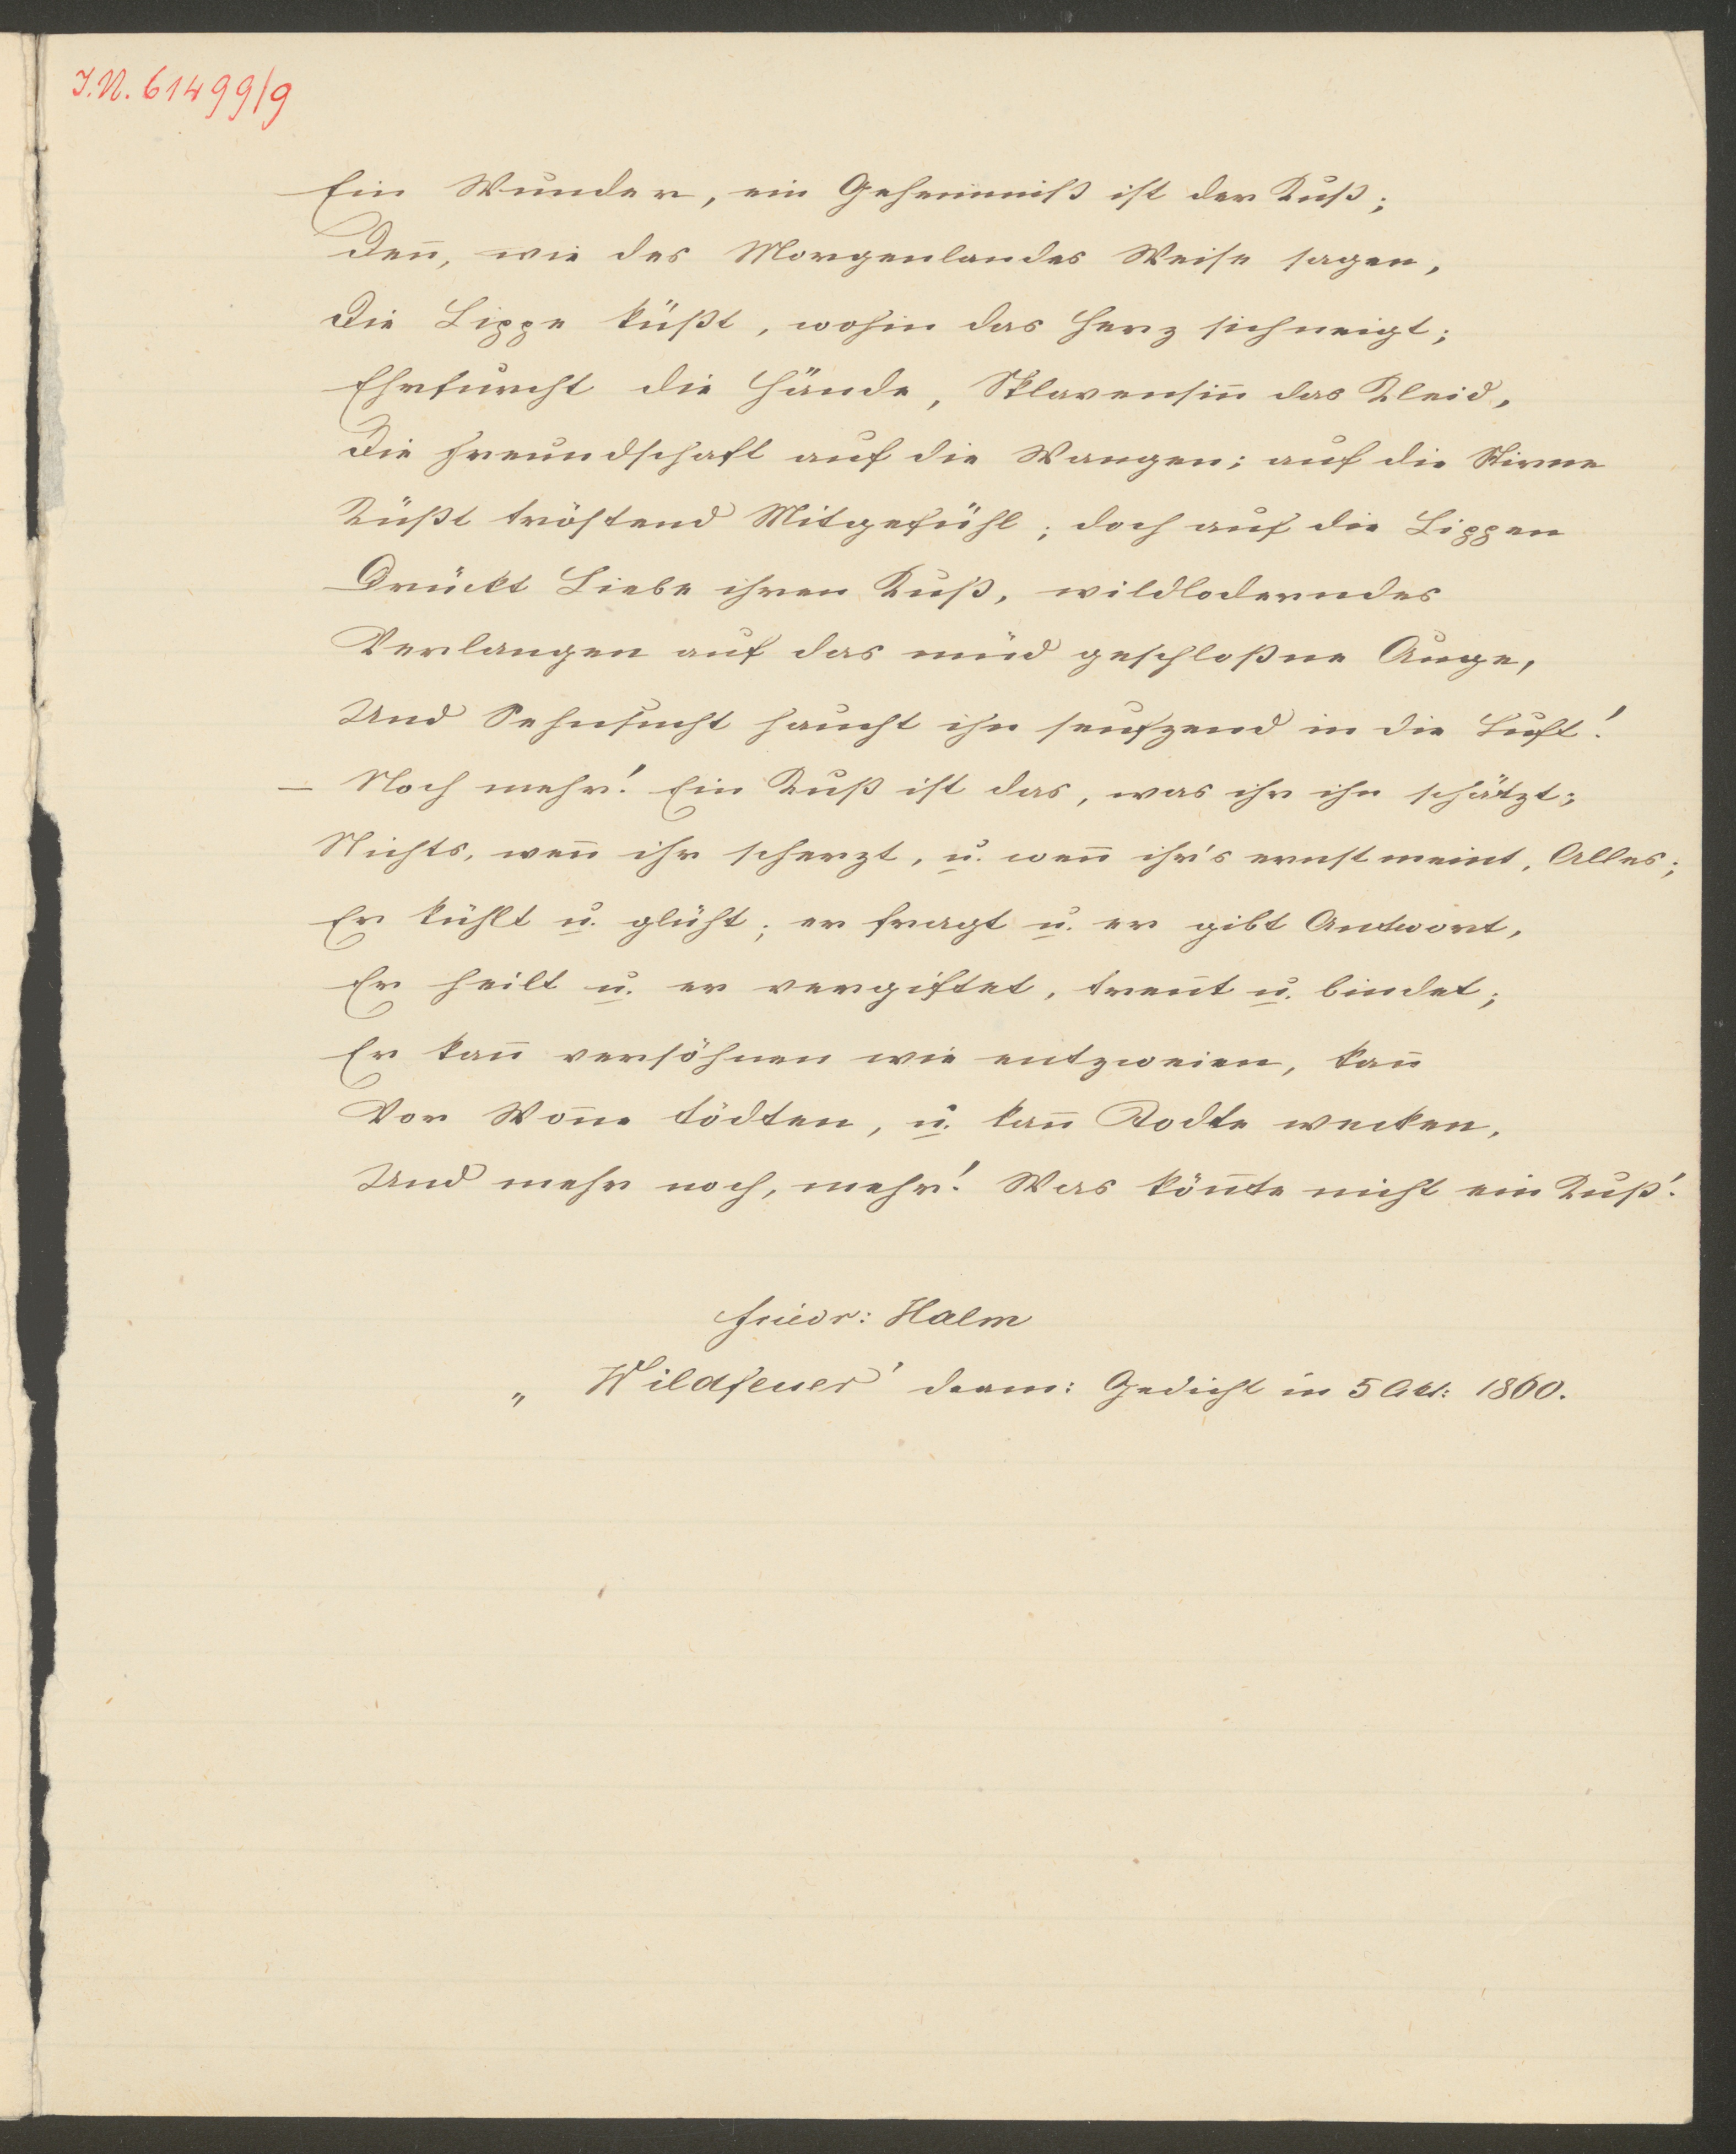 I.N. 61499/9
Ein Wunder, ein Geheimniß ist der Kuß;
Deñ, wie des Morgenlandes Weise sagen,
Die Lippe küßt, wohin das Herz sich neigt;
Ehrfurcht die Hände, Sklavensiñ das Kleid,
Die Freundschaft auf die Wangen; auf die Stirne
Küßt tröstend Mitgefühl; doch auf die Lippen
Drückt Liebe ihren Kuß, wildloderndes
Verlangen auf das müd geschloßne Auge,
Und Sehnsucht haucht ihn seufzend in die Luft!
– Noch mehr! Ein Kuß ist das, was ihr ihn schätzt;
Nichts, weñ ihr scherzt, u. weñ ihr's ernst meint, Alles;
Er kühlt u. glüht; er fragt u. er gibt Antwort,
Er heilt u. er vergiftet, treñt u. bindet;
Er kañ versöhnen wie entzweien, kañ
Vor Woñe tödten, u. kañ Todte wecken,
Und mehr noch, mehr! Was köñte nicht ein Kuß!
Friedr: Halm
„ Wildfeuer' dram: Gedicht in 5 Akt: 1860.